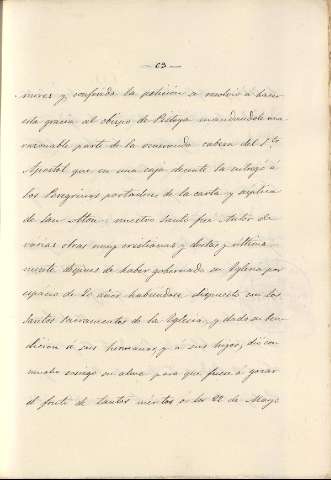 — 63 —
nires y conferida la petición se resolvió á hacer
esta gracia al obispo de Pistoya mandandole una
razonable parte de la reverenda cabeza del Sto
Apostol que en una caja decente la entregó á
los Peregrinos portadores de la carta y suplica
de San Atton; nuestro Santo fué Autor de
varias obras muy cristianas y doctas y ultima
mente despues de haber gobernado su Yglesia por
espacio de 20 años habiendose dispuesto con los
Santos Sacramentos de la Yglesia, y dado su ben
dicion á sus hermanos y á sus hijos, dió con
mucho sosiego su alma para que fuese á gozar
el fruto de tantos meritos á los 22 de Mayo